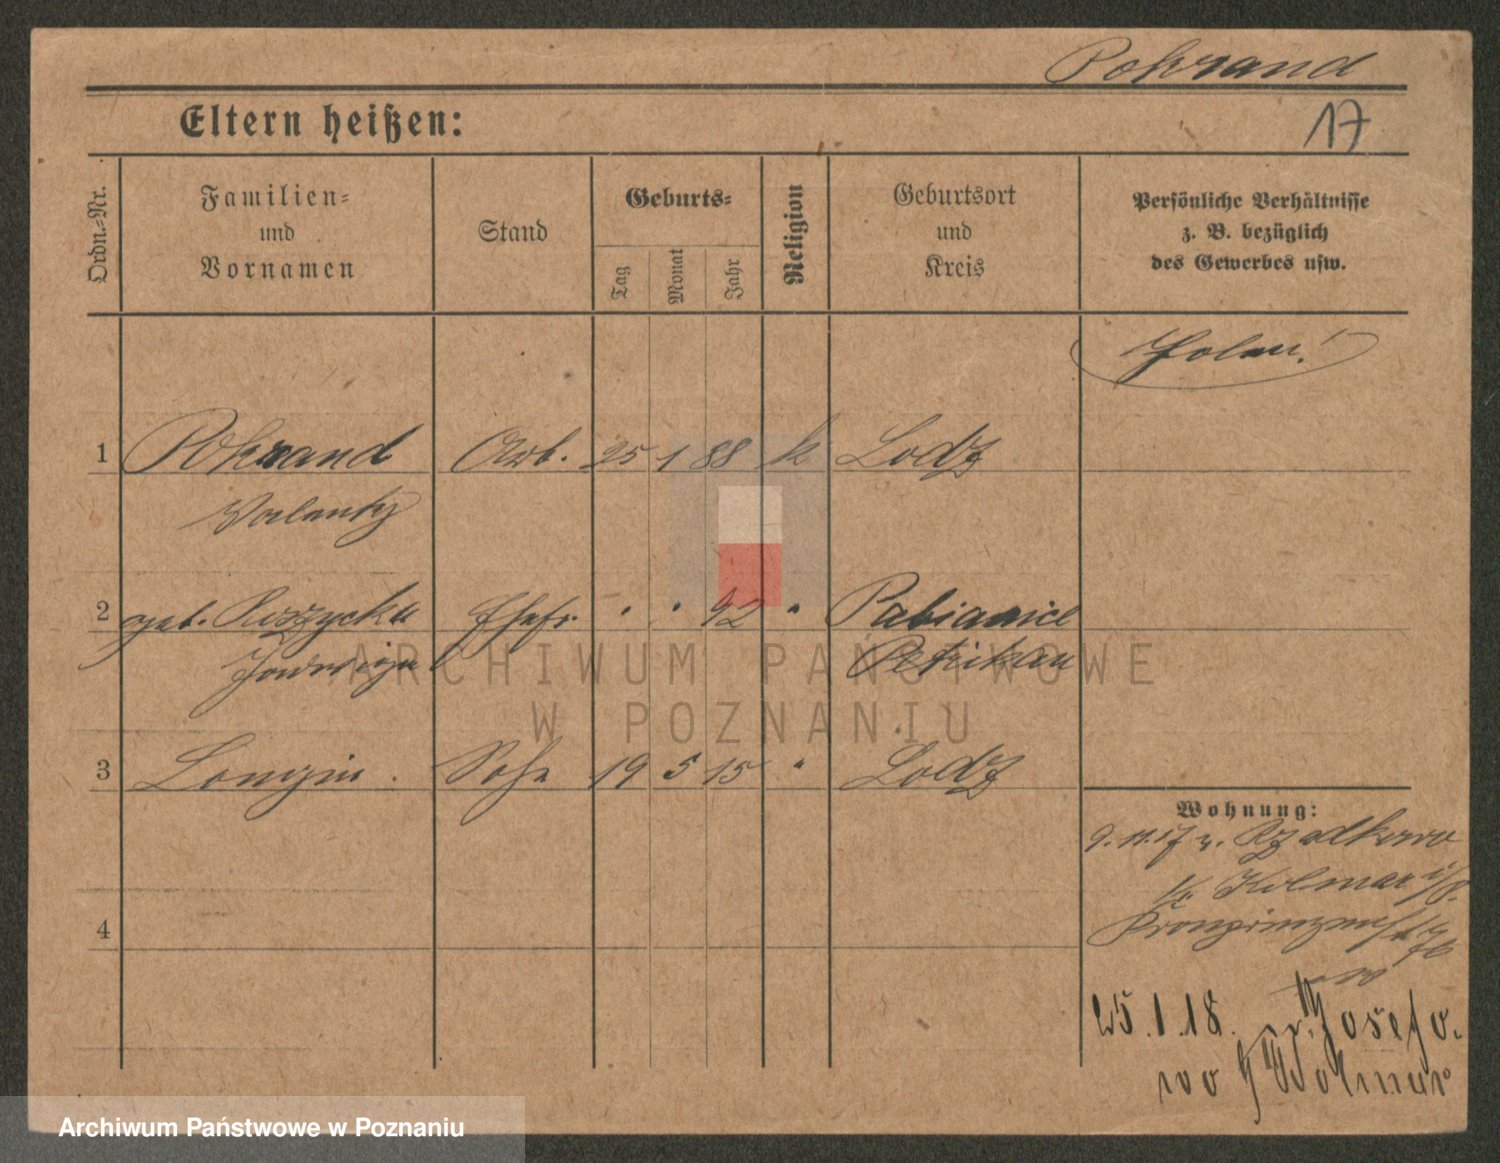 Pohrand
17
Eltern heißen:
Ordn.-Nr.
Familien-
und
Vornamen
Stand
Geburts-
Tag
Monat
Jahr
Religion
Geburtsort
und
Kreis
Persönliche Verhältnisse
z. B. bezüglich
des Gewerbes usw.
Polen!
1 Pohrand Arb. 25 1 88 k Lodz
Valenty
2 geb. Roszycka Ehefr. " " 92 " Pabianice
Jadwiga Petrikau
3 Longin. Sohn 19 5 15 " Lodz
Wohnung:
9.11.17 v. Rzadkowo
Kr. Kolmar i/P.
4
25.1.18. Josefo-
wo Kolmar
ARCHIWUM PAŃSTWOWE
W POZNANIU
Archiwum Państwowe w Poznaniu